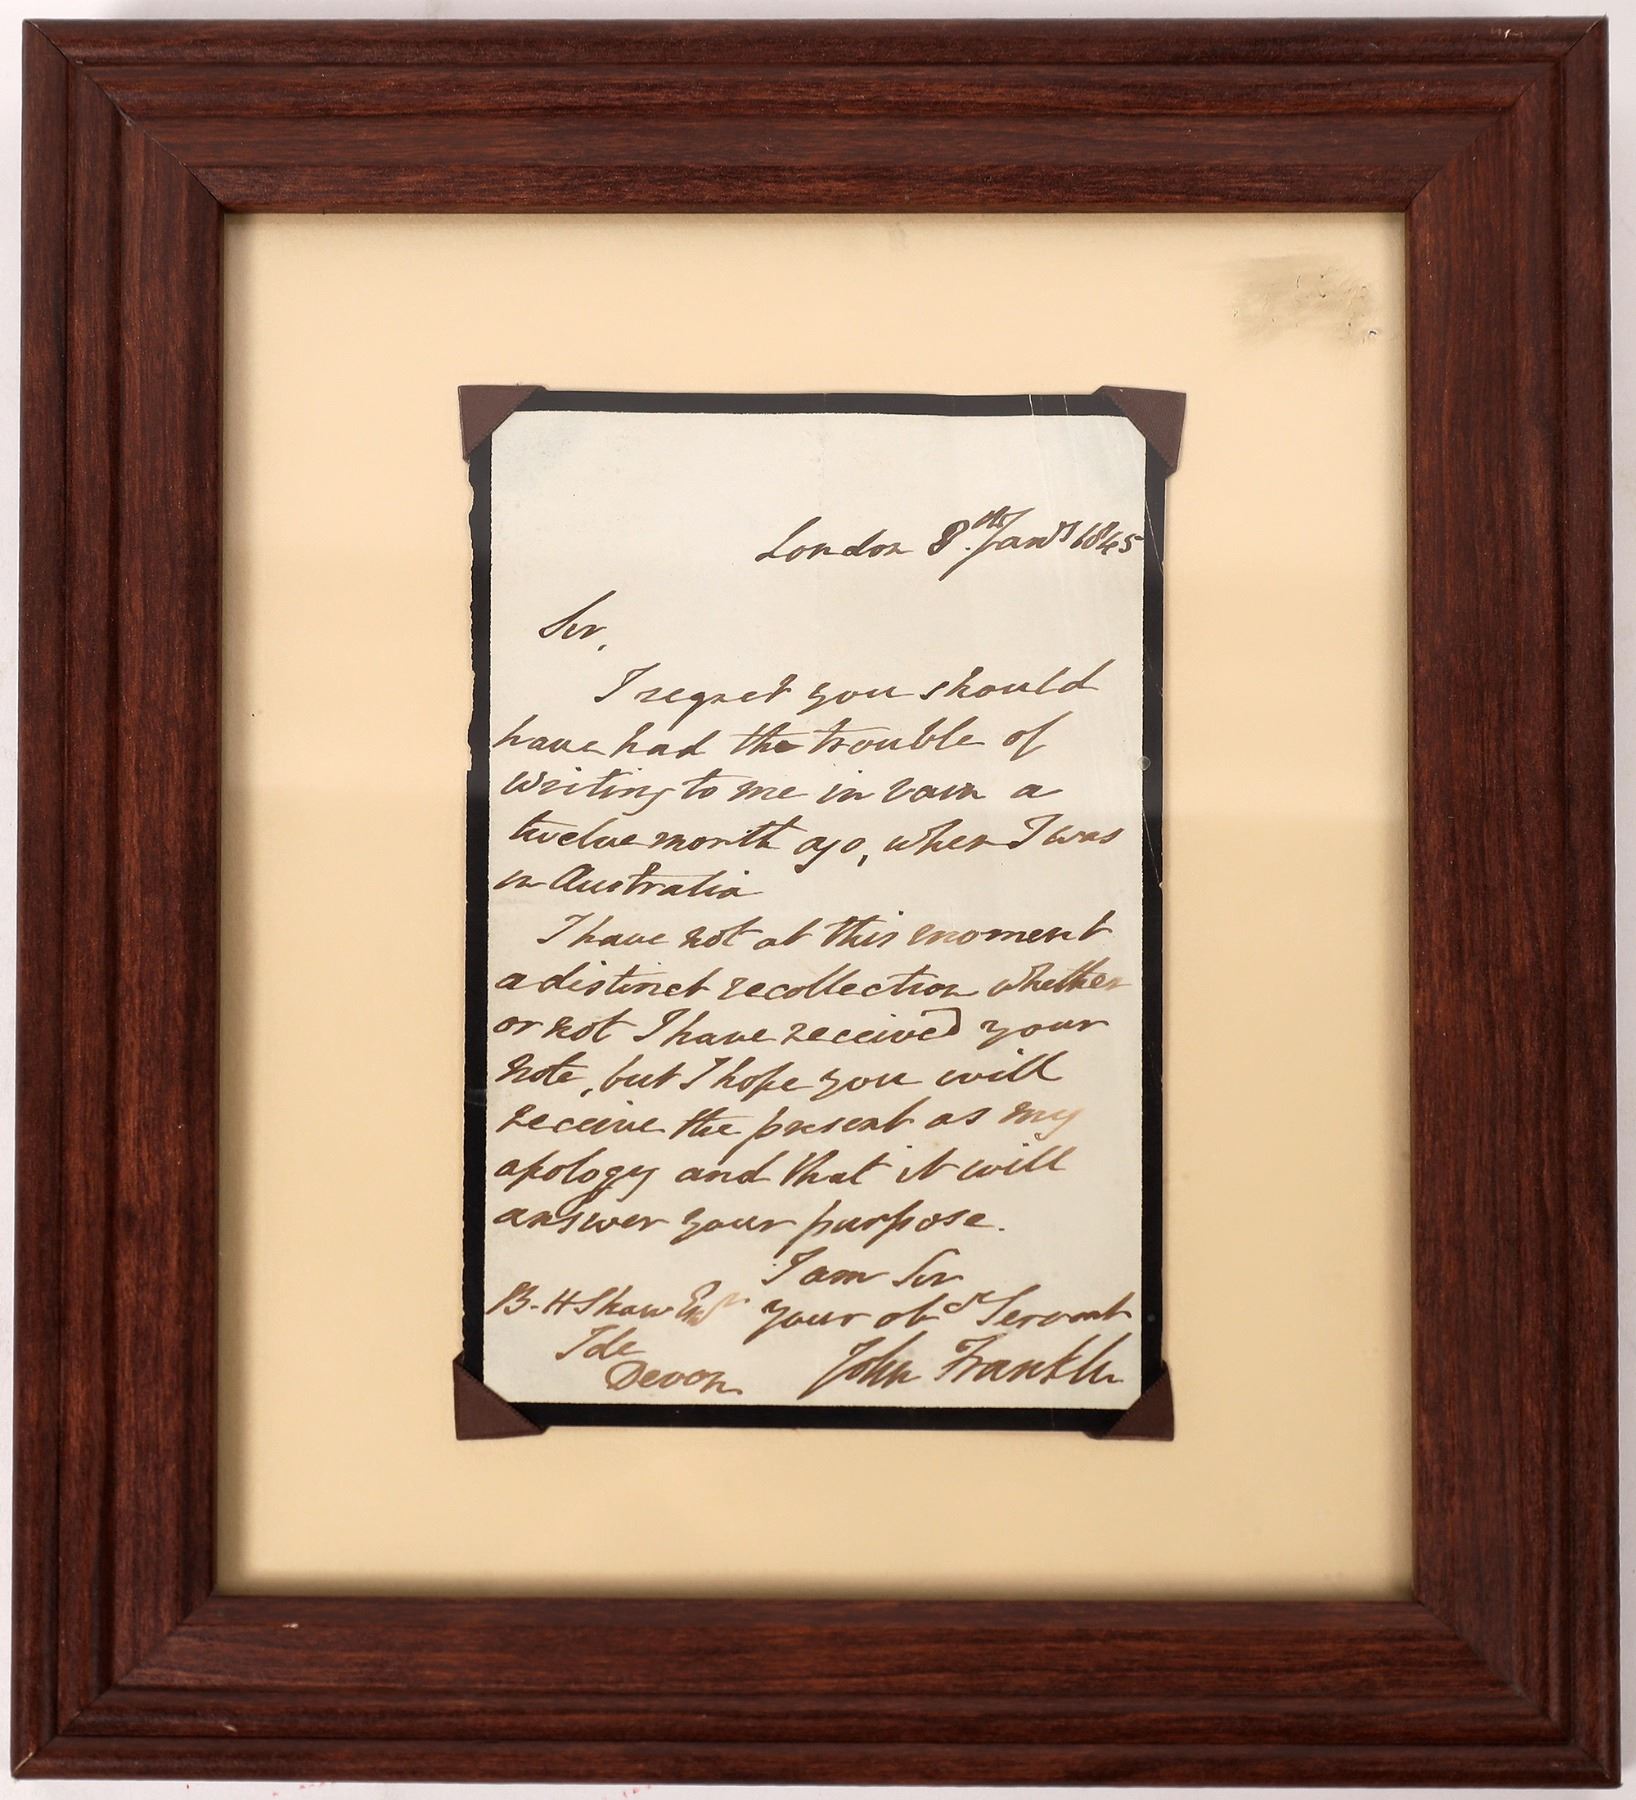 London 8th Jany 1845
Sir,
I regret you should
have had the trouble of
writing to me in vain a
twelve month ago, when I was
in Australia
I have not at this moment
a distinct recollection whether
or not I have received your
note, but I hope you will
receive the present as my
apology and that it will
answer your purpose.
I am Sir
B. H Shaw Esqr your obdt Servant
Ide
Devon John Franklin